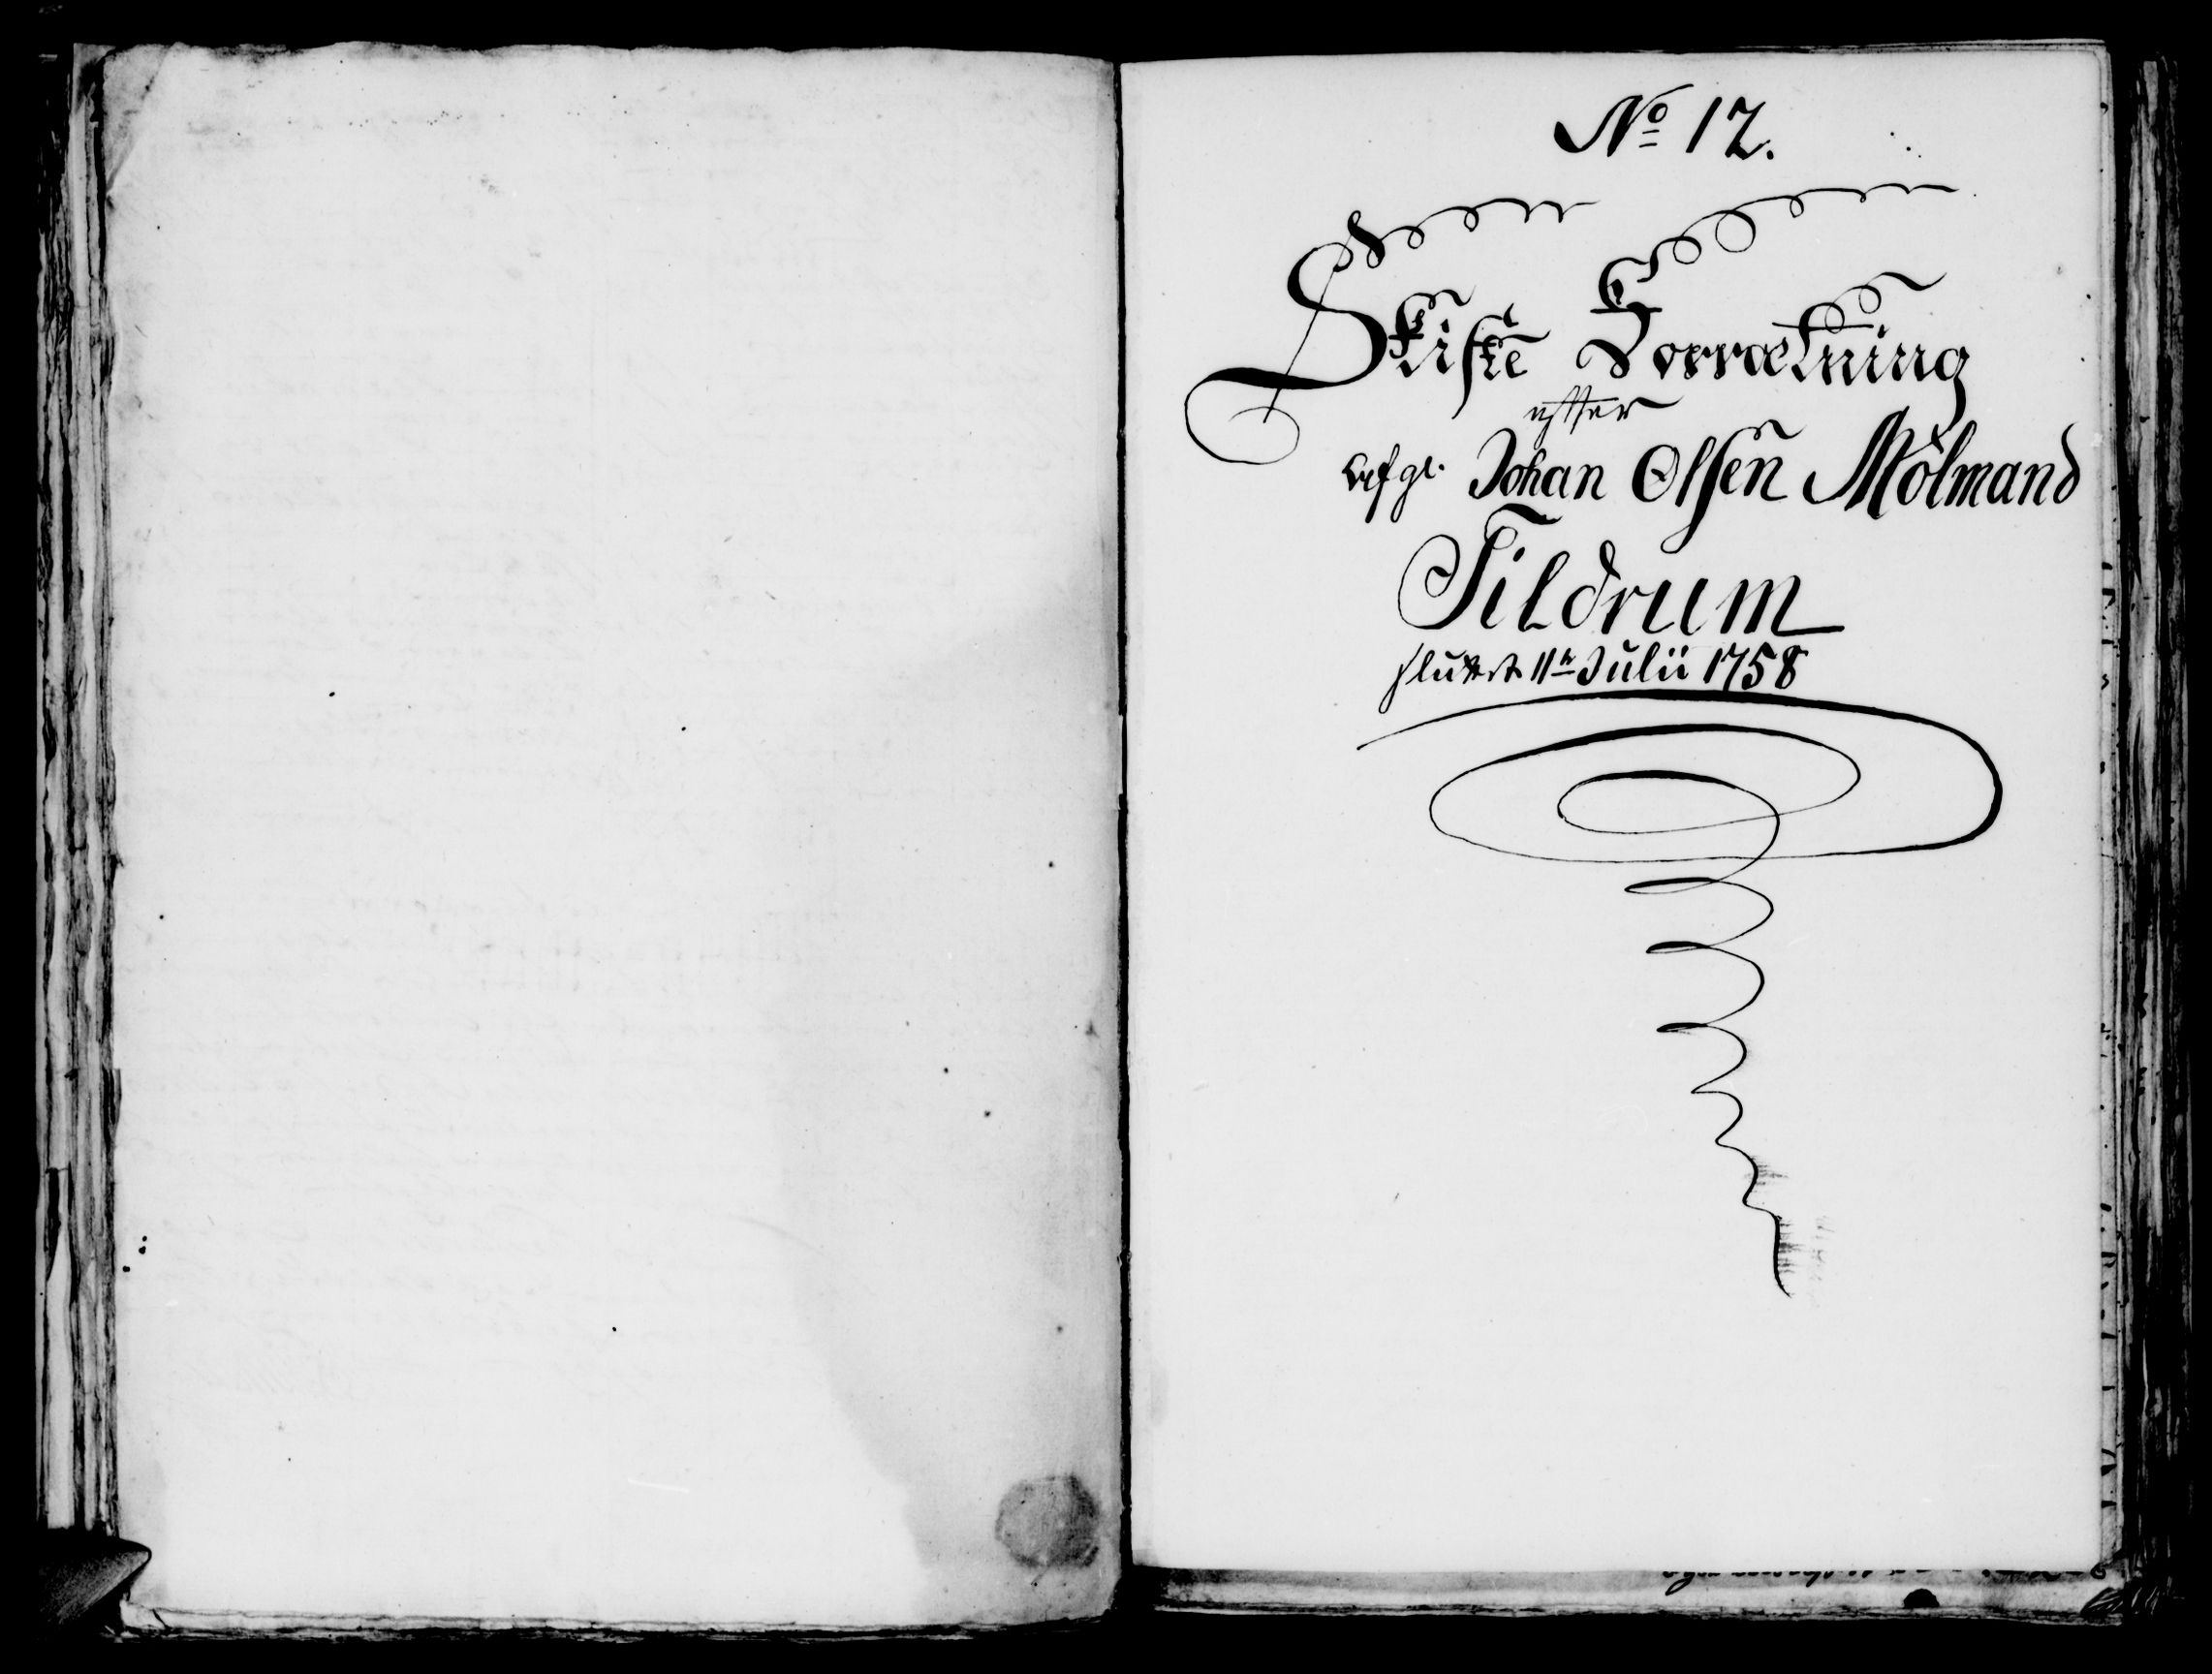 No 12.
Skifte Forrætning
efter
Johan Olsen Mölmand
Tildrum
sluttet 11te Julii 1758